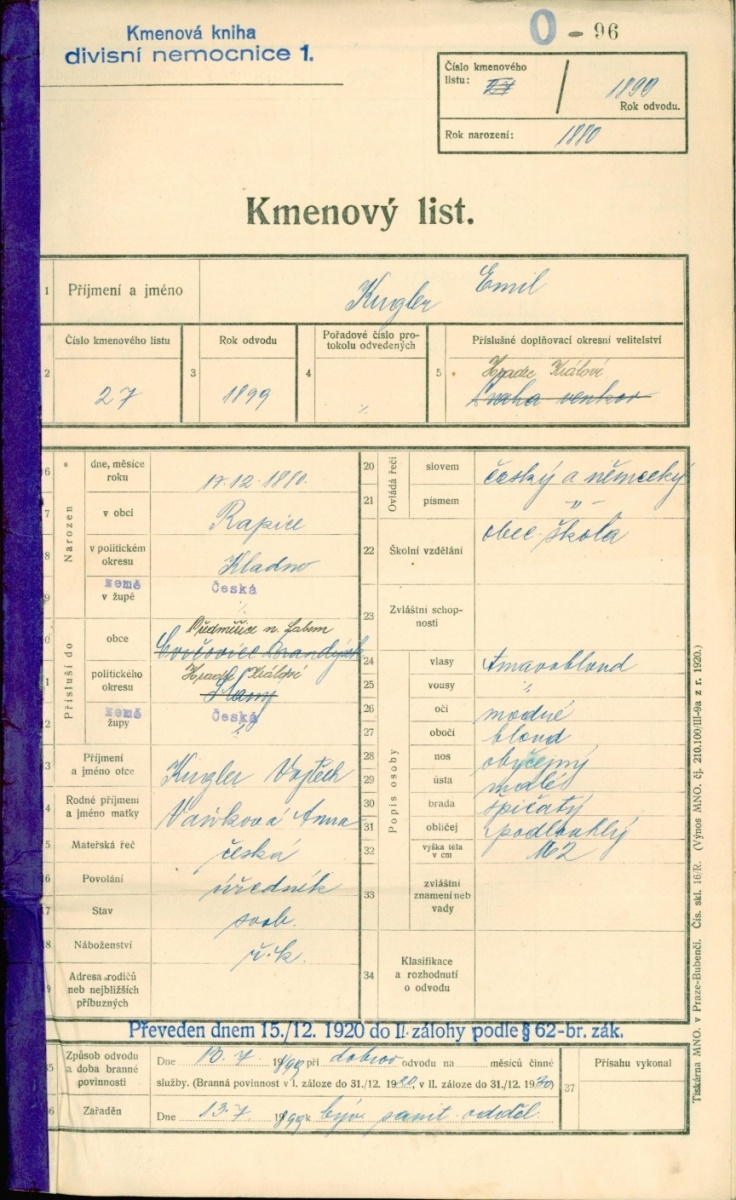 Kmenová kniha
divisní nemocnice 1.
0 - 96
Číslo kmenového listu: 27 / 1899 Rok odvodu.
Rok narození: 1880
Kmenový list.
1 Příjmení a jméno Kugler Emil
2 Číslo kmenového listu 27
3 Rok odvodu 1899
4 Pořadové číslo protokolu odvedených %
5 Příslušné doplňovací okresní velitelství Hradec Králové Praha venkov
6 Narozen dne, měsíce roku 17.12.1880.
7 v obci Rapice
8 v politickém okresu Kladno
9 Země v župě Česká %
0 Přísluší do obce Předměřice n. Labem
1 politického okresu Hradec Králové Slaný
2 Země župy Česká
3 Příjmení a jméno otce Kugler Vojtěch
4 Rodné příjmení a jméno matky Vaňková Anna
5 Mateřská řeč česká
6 Povolání úředník
7 Stav svob.
8 Náboženství ř.k.
9 Adresa rodičů neb nejbližších příbuzných
20 Ovládá řeči slovem český a německy
21 písmem -"-
22 Školní vzdělání obec. škola
23 Zvláštní schopnosti
Popis osoby
24 vlasy tmavoblond
25 vousy %
26 oči modré
27 obočí blond
28 nos obyčejný
29 ústa malé
30 brada špičatý
31 obličej podlouhlý
32 výška těla v cm 162
33 zvláštní znamení neb vady
34 Klasifikace a rozhodnutí o odvodu
Převeden dnem 15./12. 1920 do II. zálohy podle § 62-br. zák.
35 Způsob odvodu a doba branné povinnosti
Dne 13.7 1899 při dobrov odvodu na měsíců činné
služby. (Branná povinnost v I. záloze do 31./12. 1920, v II. záloze do 31./12. 1930)
36 Zařaděn Dne 13.7 1899 k býv. sanit. odděl.
37 Přísahu vykonal
Tiskárna MNO. v Praze-Bubenči. Čís. skl. 16/R. (Výnos MNO. čj. 210.100/III-9a z r. 1920.)